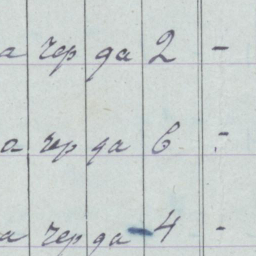 а чер да 2 -
а чер да 6 -
а чер да 4 -